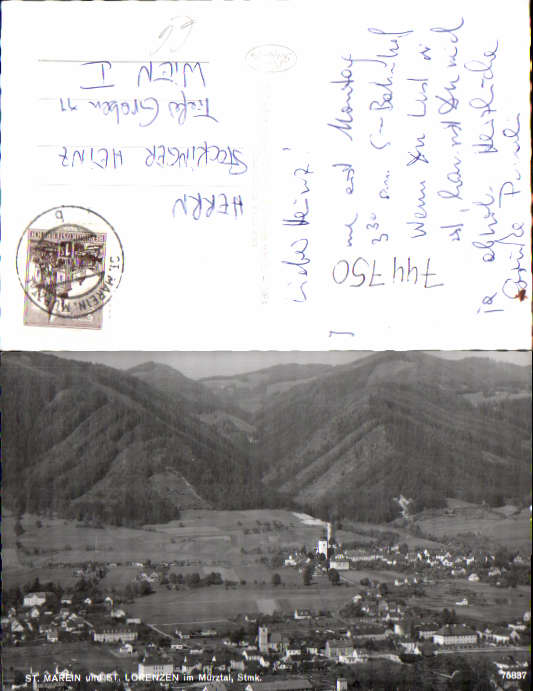 Lieber Heinz!
und erst Montag
3³⁰ am S-Bahnhof
Wenn Du Lust
ist, kannst Du mich
ja abholen Herzliche
Grüße
744750
HERRN
STOCKINGER HEINZ
Tiefer Graben 11
WIEN I
ST. MAREIN, MÜRZT
b
ST. MAREIN und ST. LORENZEN im Mürztal, Stmk.
75837